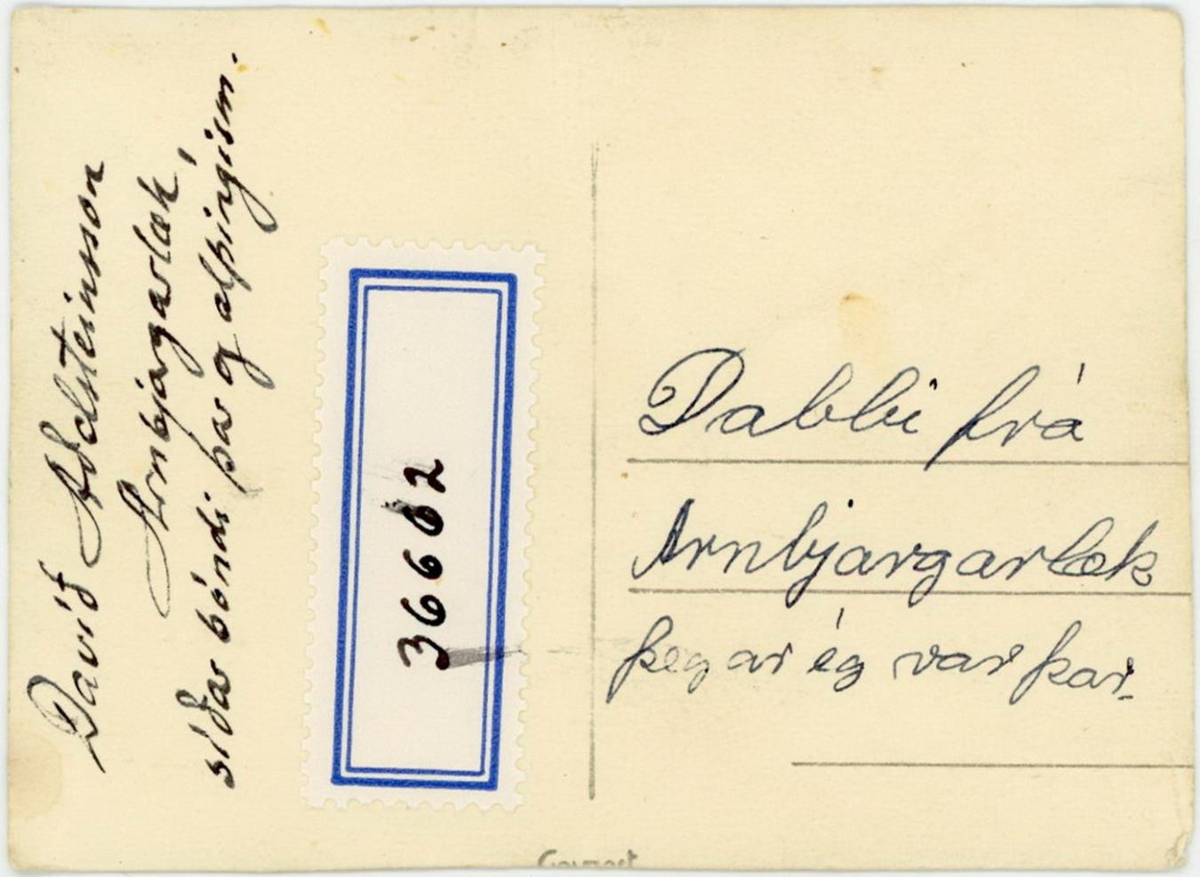 Davíð Aðalsteinsson
Arnbjargarlæk,
síðar bóndi þar og alþingism.
36662
Dabbi frá
Arnbjargarlæk
þegar ég var þar.